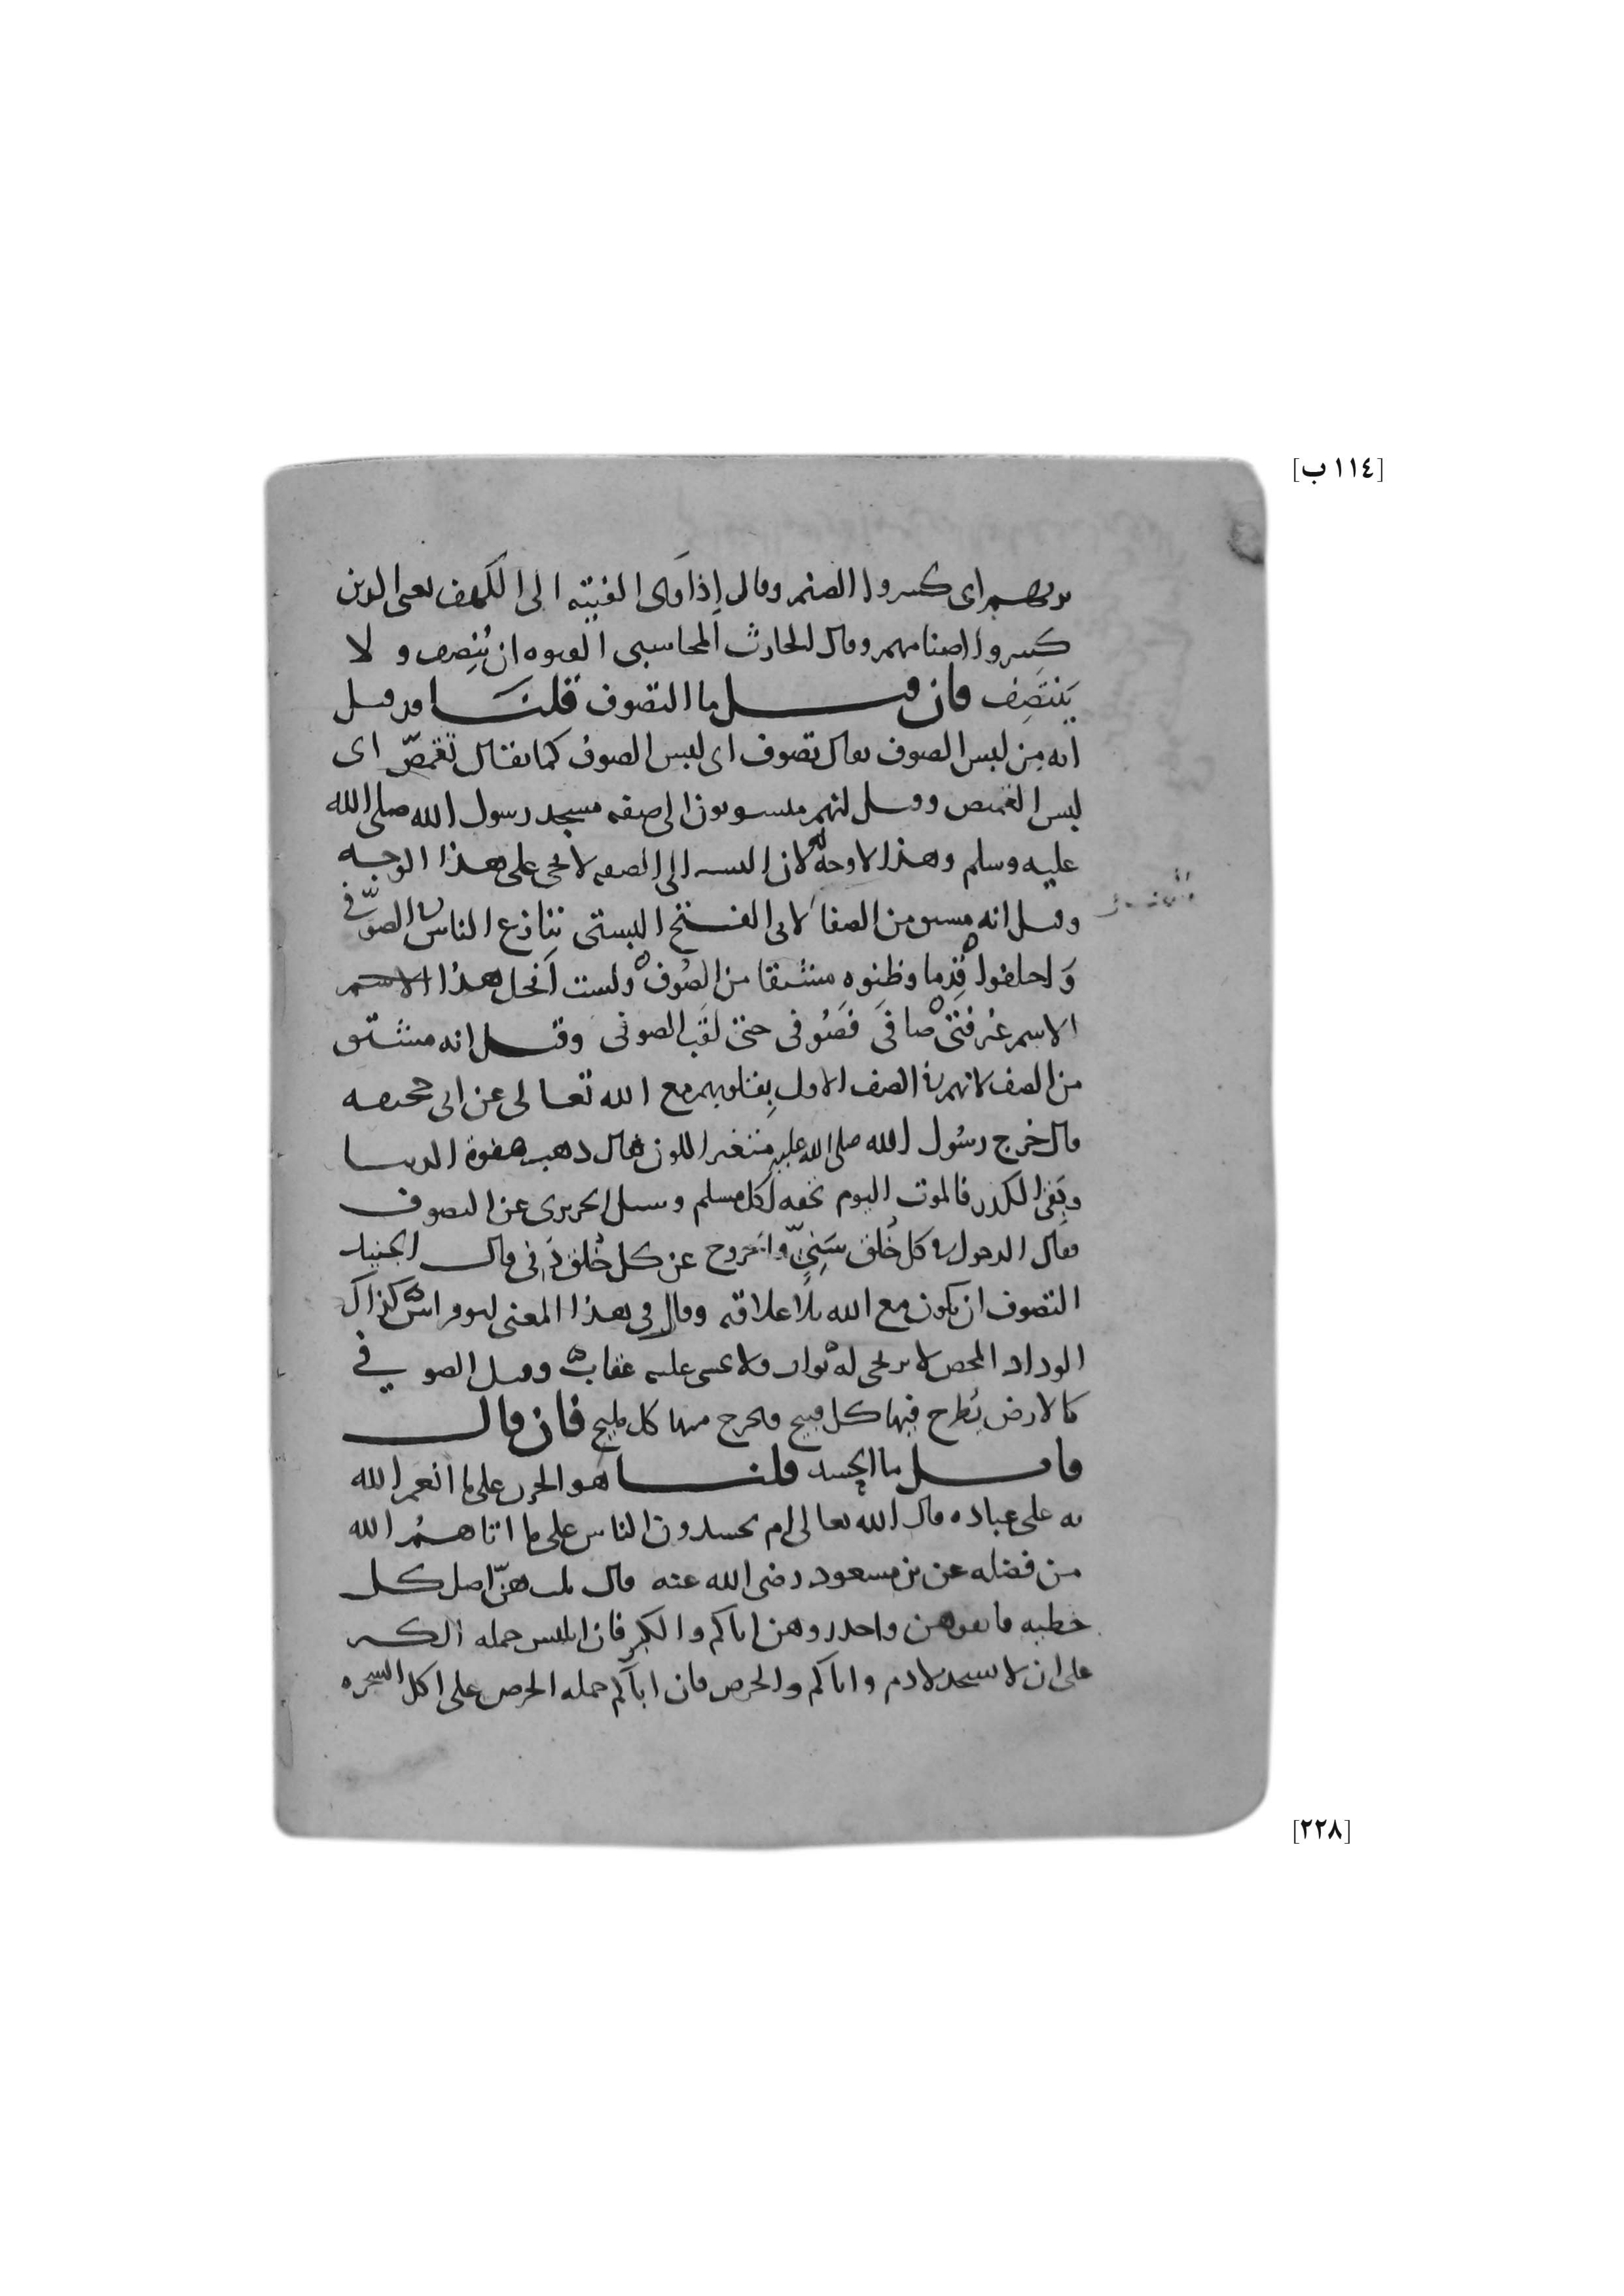 [١١٤ ب]
بربهم اى كسروا الصنم وقال اذ اوى الفتية الى الكهف يعنى الذين
كسروا اصنامهم وقال الحارث المحاسبى الفتوه ان تُنصِف و لا
تَنتَصِف فان قيل ما التصوف قلنا قد قيل
انه مِن لبس الصوف يقال تصوف اى لبس الصوف كما يقال تقمّص اى
لبس القميص وقيل انهم منسوبون الى صفه مسجد رسول الله صلى الله
عليه وسلم وهذا لا وجه له لان النسبه الى الصفه لا تجى على هذا الوجه
وقيل انه مشتق من الصفا لابى الفتح البستى تنازع الناس فى الصوفّى
واختلفوا قِدما وظنوه مشتقا من الصُوف ولست انحل هذا الاسم
الاسم غير فتى صافَى فصُوفى حتى لقب الصوفى وقيل انه مشتق
من الصف لانهم فى الصف الاول بقلوبهم مع الله تعالى عن ابى جحيفه
قال خرج رسُول الله صلى الله عليه متغير اللون فقال ذهب صفوة الدنيا
وبَقى الكدر فالموت اليوم تحفه لكل مسلم وسيل الجريرى عن التصوف
فقال الدخول فى كل خُلق سَنِىّ والخروج عن كل خُلق دَنى قال الجنيد
التصوف ان تكون مع الله بلا علاقه وقال فى هذا المعنى كذاك
الوداد المحض لا يرتجى له ثواب ولا يخشى عليه عقاب وقيل الصوفى
كالارض يُطرح فيها كل قبيح ويخرج منها كل مليح فان قال
قايل ما الحسد قلنا هو الحزن على ما انعم الله
به على عباده قال الله تعالى ام يحسدون الناس على ما اتاهُم الله
من فضله عن بن مسعود رضى الله عنه قال ثلث هنّ اصل كل
خطيه فاتقوهن واحذروهن اياكم والكبر فان ابليس حمله الكبر
على ان لا يسجد لادم واياكم والحرص فان اباكم حمله الحرص على اكل الشجره
[٢٢٨]